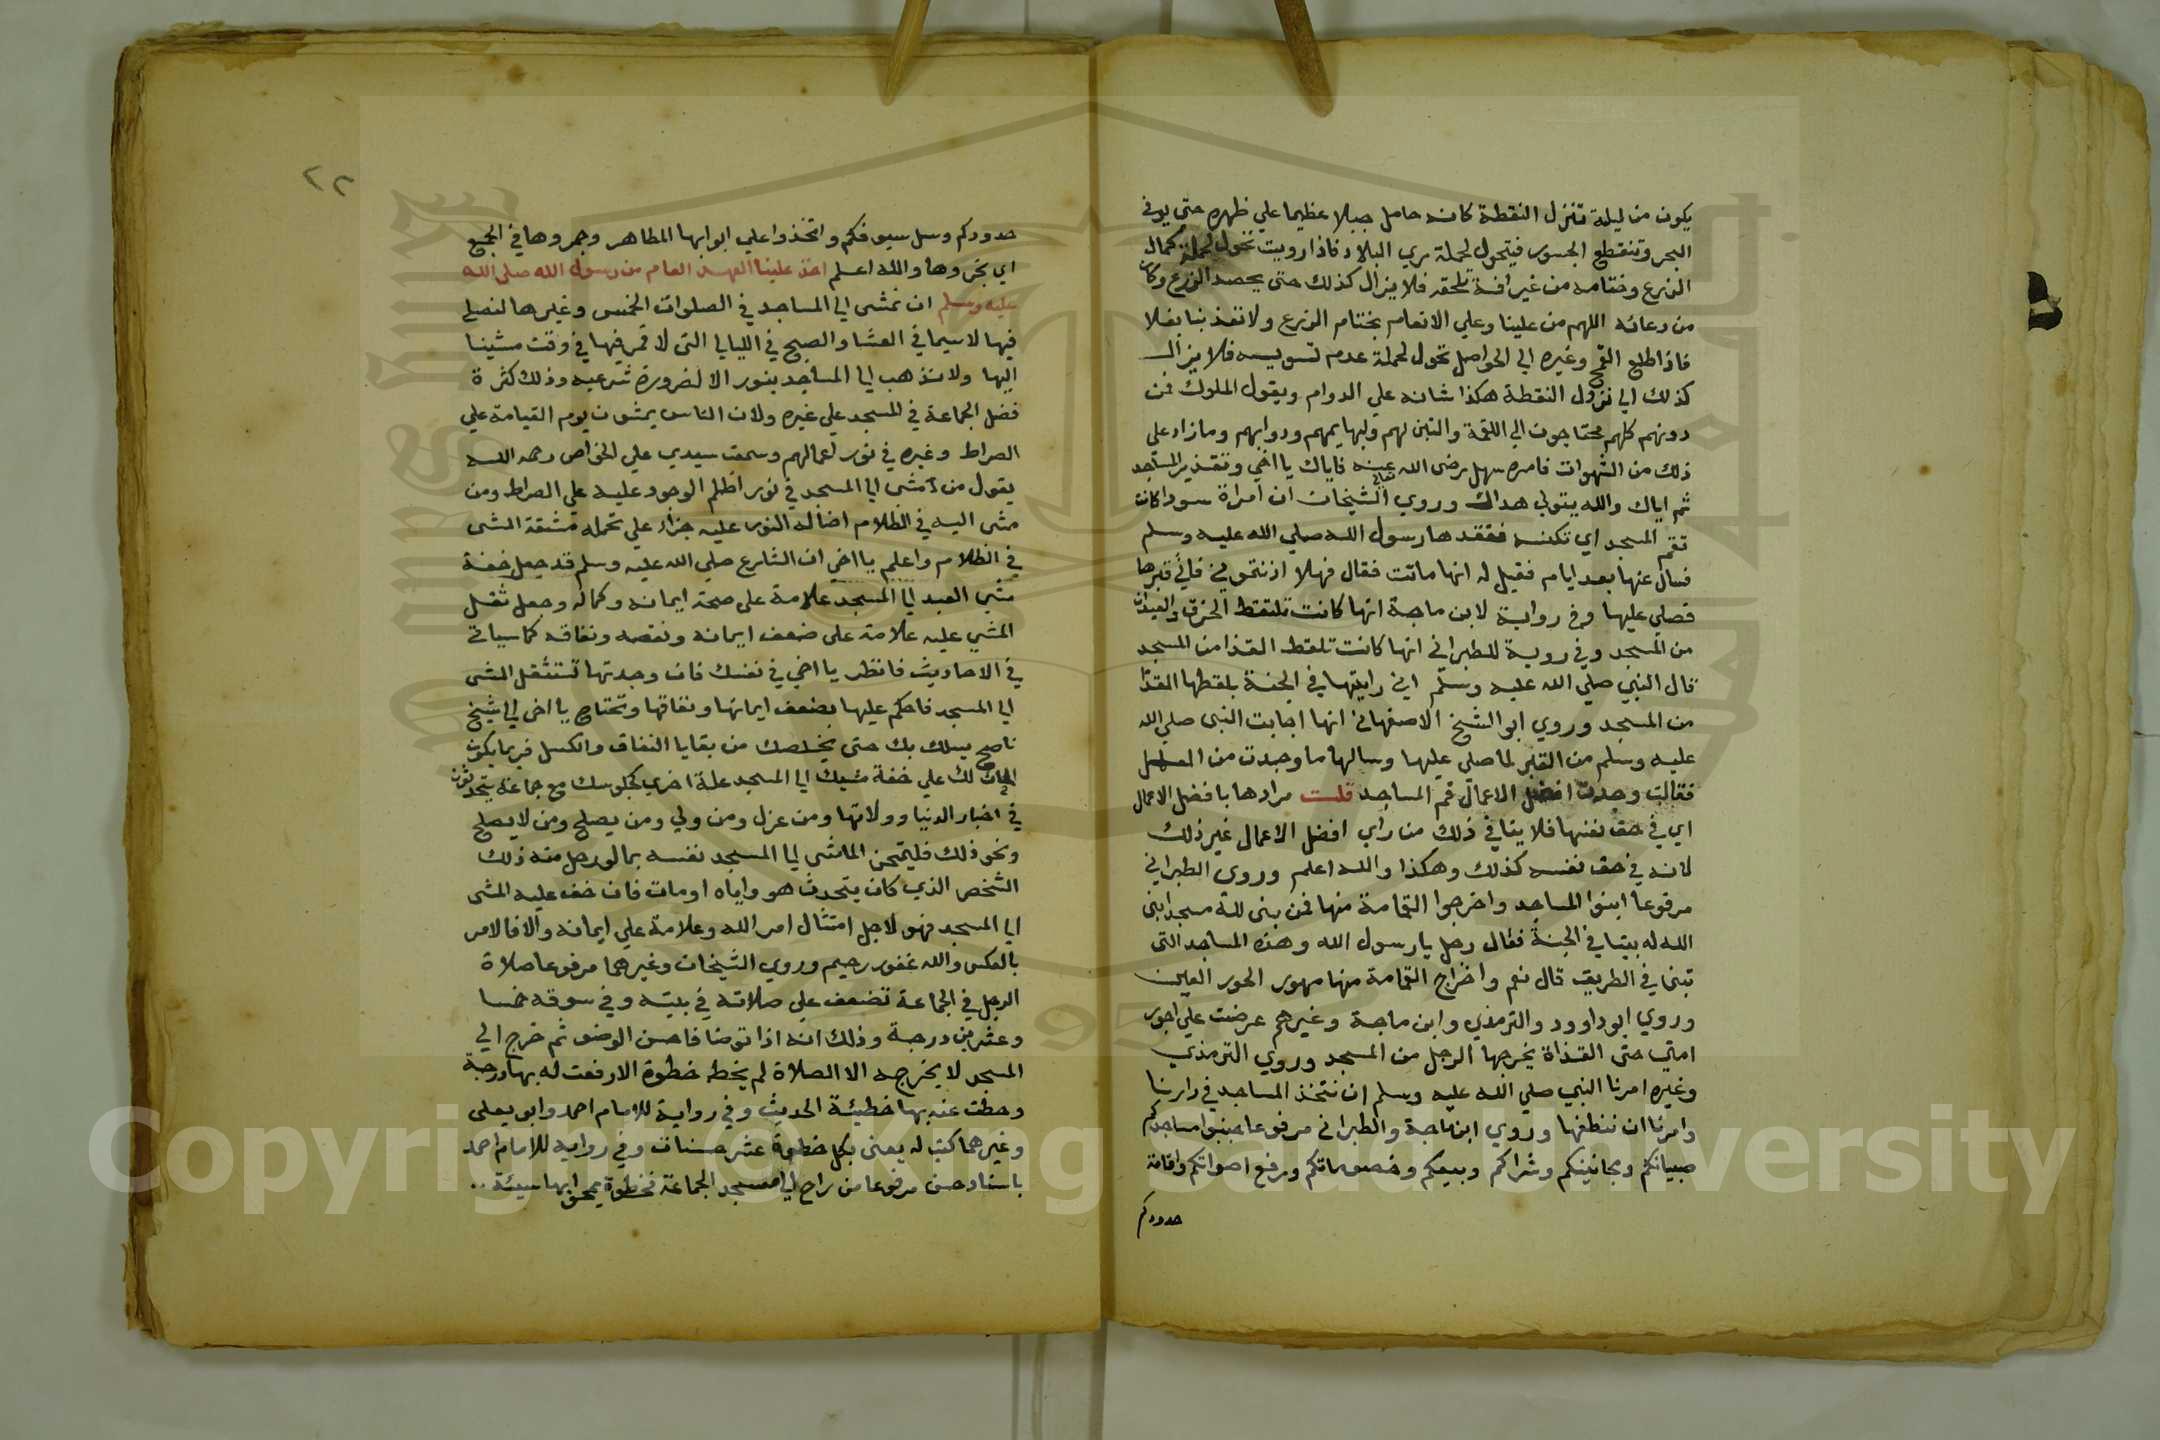 يكون من ليلة تنزل النقطة كانه حامل جبلا عظيما علي ظهره حتى يوفي
البحر وتنقطع الجسور فيتحول لحملة ري البلاد فاذا رويت تحول لحملة كمال
الزرع وختامه من غير افة تلحقه فلا يزال كذلك حتى يحصد الزرع وكان
من دعائه اللهم من علينا وعلي الانعام بختام الزرع ولا تعذبنا بغلا
فاذا طلع القمح وغيره الي الحواصل تحول لحملة عدم تسويسه فلا يزال
كذلك الي نزول النقطة هكذا شانه علي الدوام ويقول الملوك فمن
دونهم كلهم محتاجون الي اللقمة والتبن لهم ولبهايمهم ودوابهم وما زاد علي
ذلك من الشهوات فامره سهل رضى الله تعالى عنه فاياك يا اخي وتقذير المساجد
ثم اياك والله يتولي هداك وروي الشيخان ان امراة سودا كانت
تقم المسجد اي تكنسه ففقدها رسول الله صلي الله عليه وسلم
فسال عنها بعد ايام فقيل له انها ماتت فقال فهلا اذنتموني فاتي قبرها
فصلي عليها وفي رواية لابن ماجة انها كانت تلتقط الخرق والعيدان
من المسجد وفي روية للطبراني انها كانت تلقط القذا من المسجد
قال النبي صلي الله عليه وسلم اني رايتها في الجنة بلقطها القذا
من المسجد وروي ابو الشيخ الاصفهاني انها اجابت النبى صلي الله
عليه وسلم من القبر لما صلي عليها وسالها ما وجدت من العمل
فقالت وجدت افضل الاعمال قم المساجد قلت مرادها بافضل الاعمال
اي في حق نفسها فلا ينافي ذلك من راي افضل الاعمال غير ذلك
لانه في حق نفسه كذلك وهكذا والله اعلم وروى الطبراني
مرفوعا ابنوا المساجد واخرجوا القمامة منها فمن بنى لله مسجدا بنى
الله له بيتا في الجنة فقال رجل يا رسول الله وهذه المساجد التى
تبنا في الطريق قال نعم واخراج القمامة منها مهور الحور العين
وروي ابو داوود والترمذي وابن ماجة وغيرهم عرضت علي اجور
امتي حتى القذاة يخرجها الرجل من المسجد وروي الترمذي
وغيره امرنا النبي صلي الله عليه وسلم ان نتخذ المساجد في دارنا
وامرنا ان ننظفها وروي ابن ماجة والطبراني مرفوعا جنبوا مساجدكم
صبيانكم ومجانينكم وشراكم وبيعكم وخصوماتكم ورفع اصواتكم واقامة
حدودكم
٢٢
حدودكم وسل سيوفكم واتخذوا علي ابوابها المطاهر وجمروها في الجمع
اي بخروها والله اعلم اخذ علينا العهد العام من رسول الله صلى الله
عليه وسلم ان نمشى الي المساجد في الصلوات الخمس وغيرها لنصلي
فيها لاسيما في العشا والصبح في الليالي التى لا قمر فيها في وقت مشينا
اليها ولا نذهب الي المساجد بنور الا لضرورة شرعيه وذلك كثرة
فضل الجماعة في المسجد علي غيره ولان الناس يمشون يوم القيامة علي
الصراط وغيره في نور اعمالهم وسمعت سيدي علي الخواص رحمه الله
يقول من مشى الي المسجد في نور اظلم الوجود عليه علي الصراط ومن
مشى اليه في الظلام اضا له النور عليه جزاء علي تحمله مشقة المشى
في الظلام واعلم يا اخي ان الشارع صلي الله عليه وسلم قد جعل خفة
مشي العبد الي المسجد علامة على صحة ايمانه وكماله وجعل ثقل
المشي عليه علامة على ضعف ايمانه ونقصه ونفاقه كما سياتي
في الاحاديث فانظر يا اخي في نفسك فان وجدتها تستثقل المشى
الي المسجد فاحكم عليها بضعف ايمانها ونفاقها وتحتاج يا اخى الي شيخ
ناصح يسلك بك حتى يخلصك من بقايا النفاق والكسل فربما يكون
الحامل لك علي خفة مشيك الي المسجد علة اخري كجلوسك مع جماعة يتحدثون
في اخبار الدنيا وولاتها ومن عزل ومن ولي ومن يصلح ومن لا يصلح
ونحو ذلك فليمتحن الماشي الي المسجد نفسه بما لو رحل منه ذلك
الشخص الذي كان يتحدث هو واياه او مات فان خف عليه المشى
الي المسجد فهو لاجل امتثال امر الله وعلامة علي ايمانه والا فالامر
بالعكس والله غفور رحيم وروي الشيخان وغيرهما مرفوعا صلاة
الرجل في الجماعة تضعف علي صلاته في بيته وفي سوقه خمسا
وعشرين درجة وذلك انه اذا توضا فاحسن الوضو ثم خرج الي
المسجد لا يخرجه الا الصلاة لم يخط خطوة الا رفعت له بها درجة
وحطت عنه بها خطيئة الحديث وفي رواية للامام احمد وابو يعلى
وغيرهما كتب له يعنى بكل خطوة عشر حسنات وفي رواية للامام احمد
باسناد حسن مرفوعا من راح الي مسجد الجماعة فخطوة يمحق بها سيئة
Copyright © King Saud University